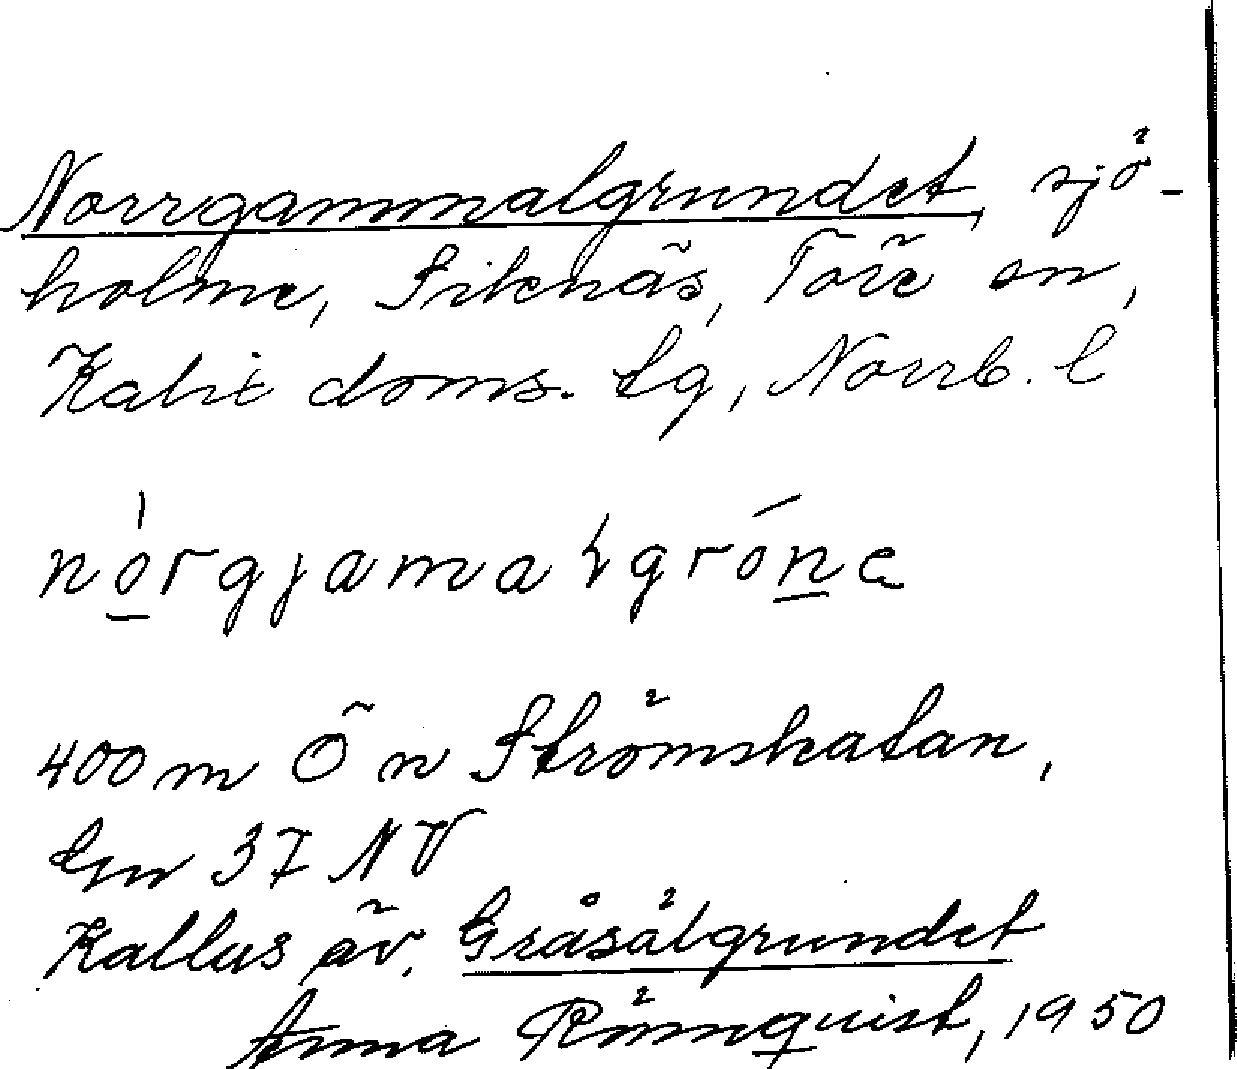 Norrgammalgrundet, sjö-
holme, Siknäs, Töre sn,
Kalix doms. tg, Norrb. l
nórgjamaɫgróne
400 m Ö n Strömskatan,
Gn 37 NV
Kallas äv. Gråsälgrundet
Anna Rönnquist, 1950